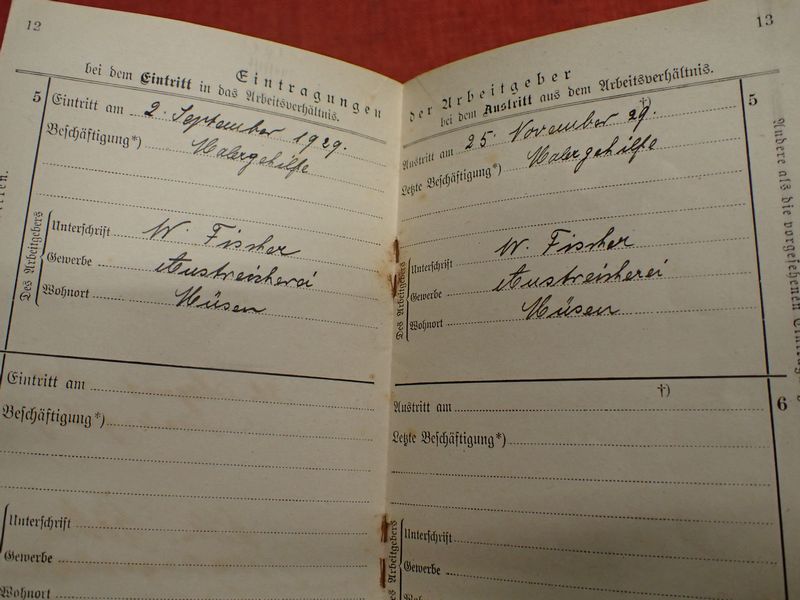 12
Eintragungen
bei dem Eintritt in das Arbeitsverhältnis.
5
Eintritt am 2. September 1929.
Beschäftigung*) Malergehilfe
Des Arbeitgebers
Unterschrift W. Fischer
Gewerbe Anstreicherei
Wohnort Müsen
Eintritt am
Beschäftigung*)
Unterschrift
Gewerbe
Wohnort
13
der Arbeitgeber
bei dem Austritt aus dem Arbeitsverhältnis.
5
†)
Austritt am 25. November 29.
Letzte Beschäftigung*) Malergehilfe
Des Arbeitgebers
Unterschrift W. Fischer
Gewerbe Anstreicherei
Wohnort Müsen
†)
6
Austritt am
Letzte Beschäftigung*)
Des Arbeitgebers
Unterschrift
Gewerbe
Andere als die vorgesehenen